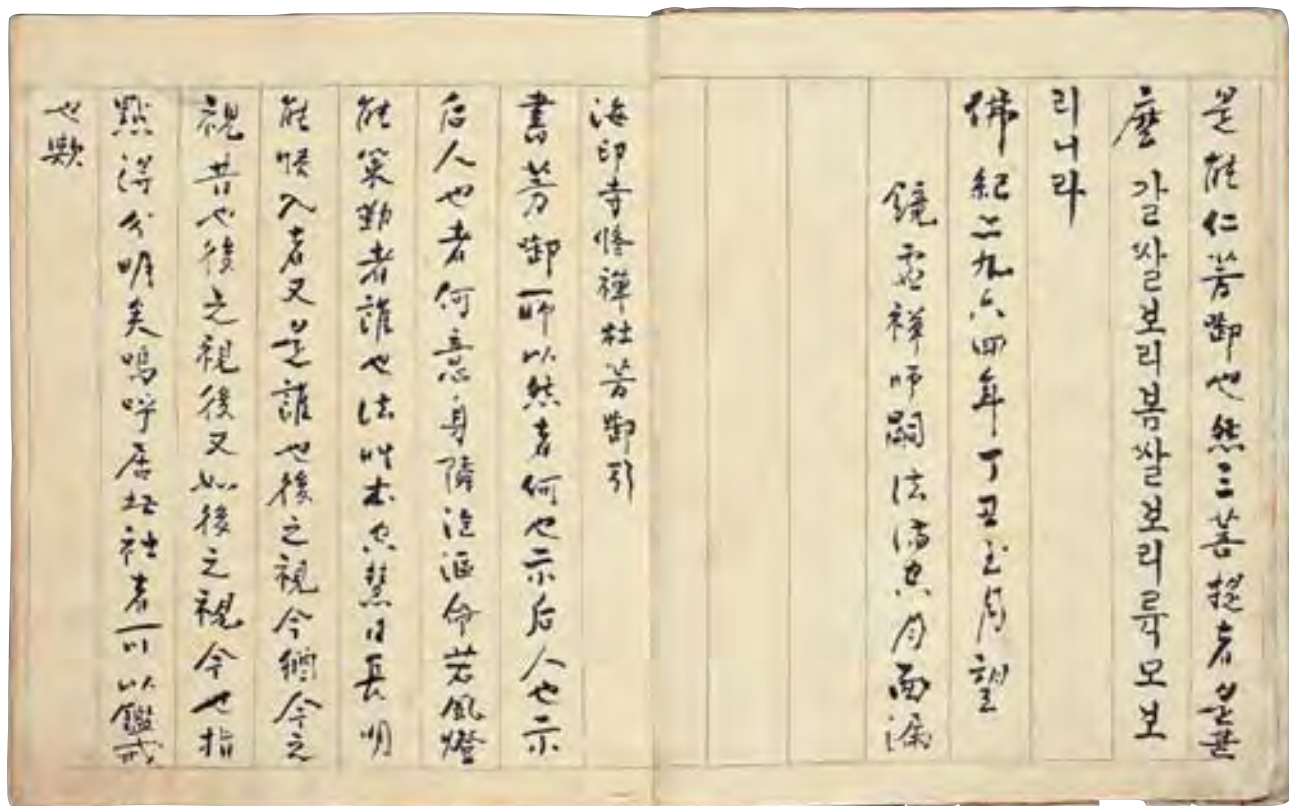 是能仁芳啣也然三菩提者是甚
麽 갈쌀보리봄쌀보리륙모보
리니라
佛紀二九六四年丁丑至月望
鏡虛禪師嗣法滿空月面識
海印寺修禪社芳啣引
書芳啣所以然者何也示后人也示
后人也者何意身隣泡漚命若風燈
能策勤者誰也法性本空慧日長明
能悟入者又是誰也後之視今猶今之
視昔也後之視後又如後之視今也指
點得分明矣嗚呼居於社者可以鑑戒
也歟